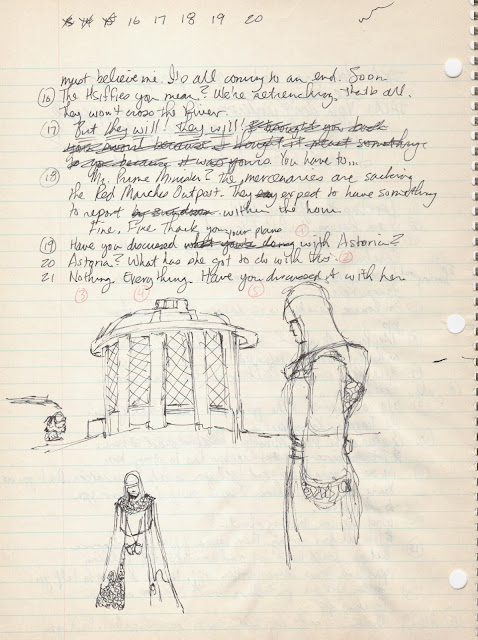 16 17 18 19 20
must believe me. It's all coming to an end. Soon
(16) The Hsiffies you mean? We're retrenching, that's all.
They won't cross the River.
(17) But they will! they will! I brought you back
your sword because I thought it meant something
to you because it was yours. You have to...
(18) Mr. Prime Minister? The mercenaries are sacking
the Red Marches Outpost. They say expect to have something
to report by sundown within the hour.
Fine. Fine. Thank you
your plans 1
(19) Have you discussed what you're doing with Astoria?
20 Astoria? What has she got to do with this. 2
21 Nothing. Everything. Have you discussed it with her.
3 4 5